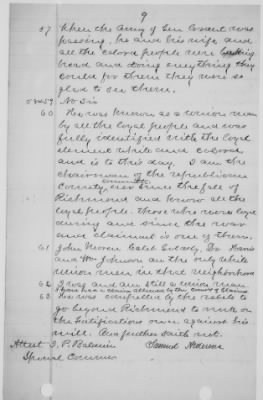 9
57 When the Army of Gen Grant was
passing, he and his wife, and
all the colored people were baking
bread and doing everything they
could for them they were so
glad to see them.
58 & 59 No Sir
60 He was known as a union man
by all the loyal people and was
fully identified with the loyal
element white and colored
and is to this day. I am the
chairman of the republican
committee
County, ever since the fall of
Richmond and know all the
loyal people. those who were loyal
during and since the war
and claimant is one of them,
61 John Moren Caleb
and Wm Johnson are the only white
union men in that neighborhood
62 I was and am still a union man
63 He was compelled by the rebels to
go beyond Richmond to work on
the fortifications own against his
will. And further saith not.
Attest I. P. Baldwin Samuel
Special Commr